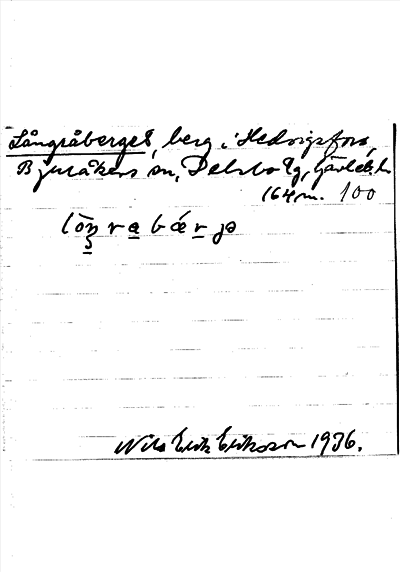 Långråberget, berg i Hedvigsfors,
Bjuråkers sn, Delsbo tg, Gävleb. l.
164 m. 100
Nils Erik Eriksson 1936.